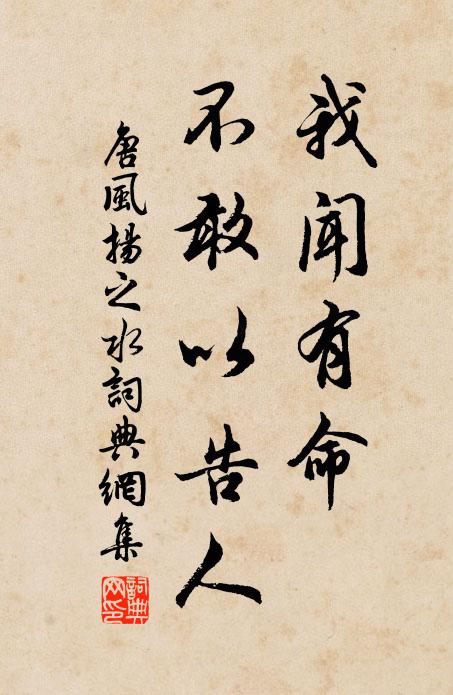 我聞有命
不敢以告人
唐風揚之水詞典網集
詞典網印